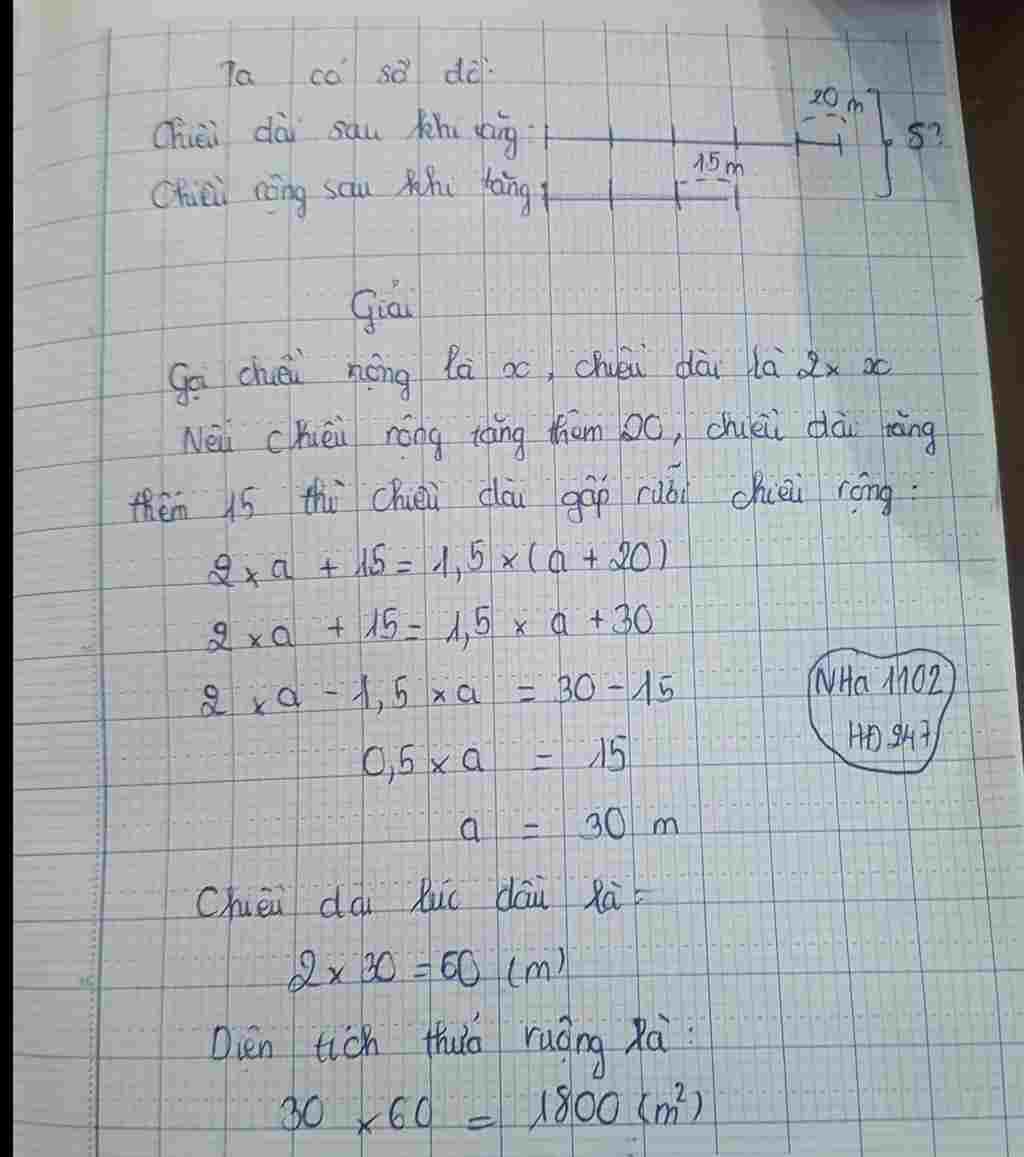 Ta có sơ đồ:
20 m
Chiều dài sau khi tăng: S?
15m
Chiều rộng sau khi tăng
Giải
Gọi chiều rộng là x, chiều dài là 2 x x
Nếu chiều rộng tăng thêm 20, chiều dài tăng
thêm 15 thì chiều dài gấp rưỡi chiều rộng:
2 x a + 15 = 1,5 x (a + 20)
2 x a + 15 = 1,5 x a + 30
2 x a - 1,5 x a = 30 - 15
NHa 1102
0,5 x a = 15
HD 247
a = 30 m
Chiều dài lúc đầu là:
2 x 30 = 60 (m)
Diện tích thửa ruộng là:
30 x 60 = 1800 (m²)